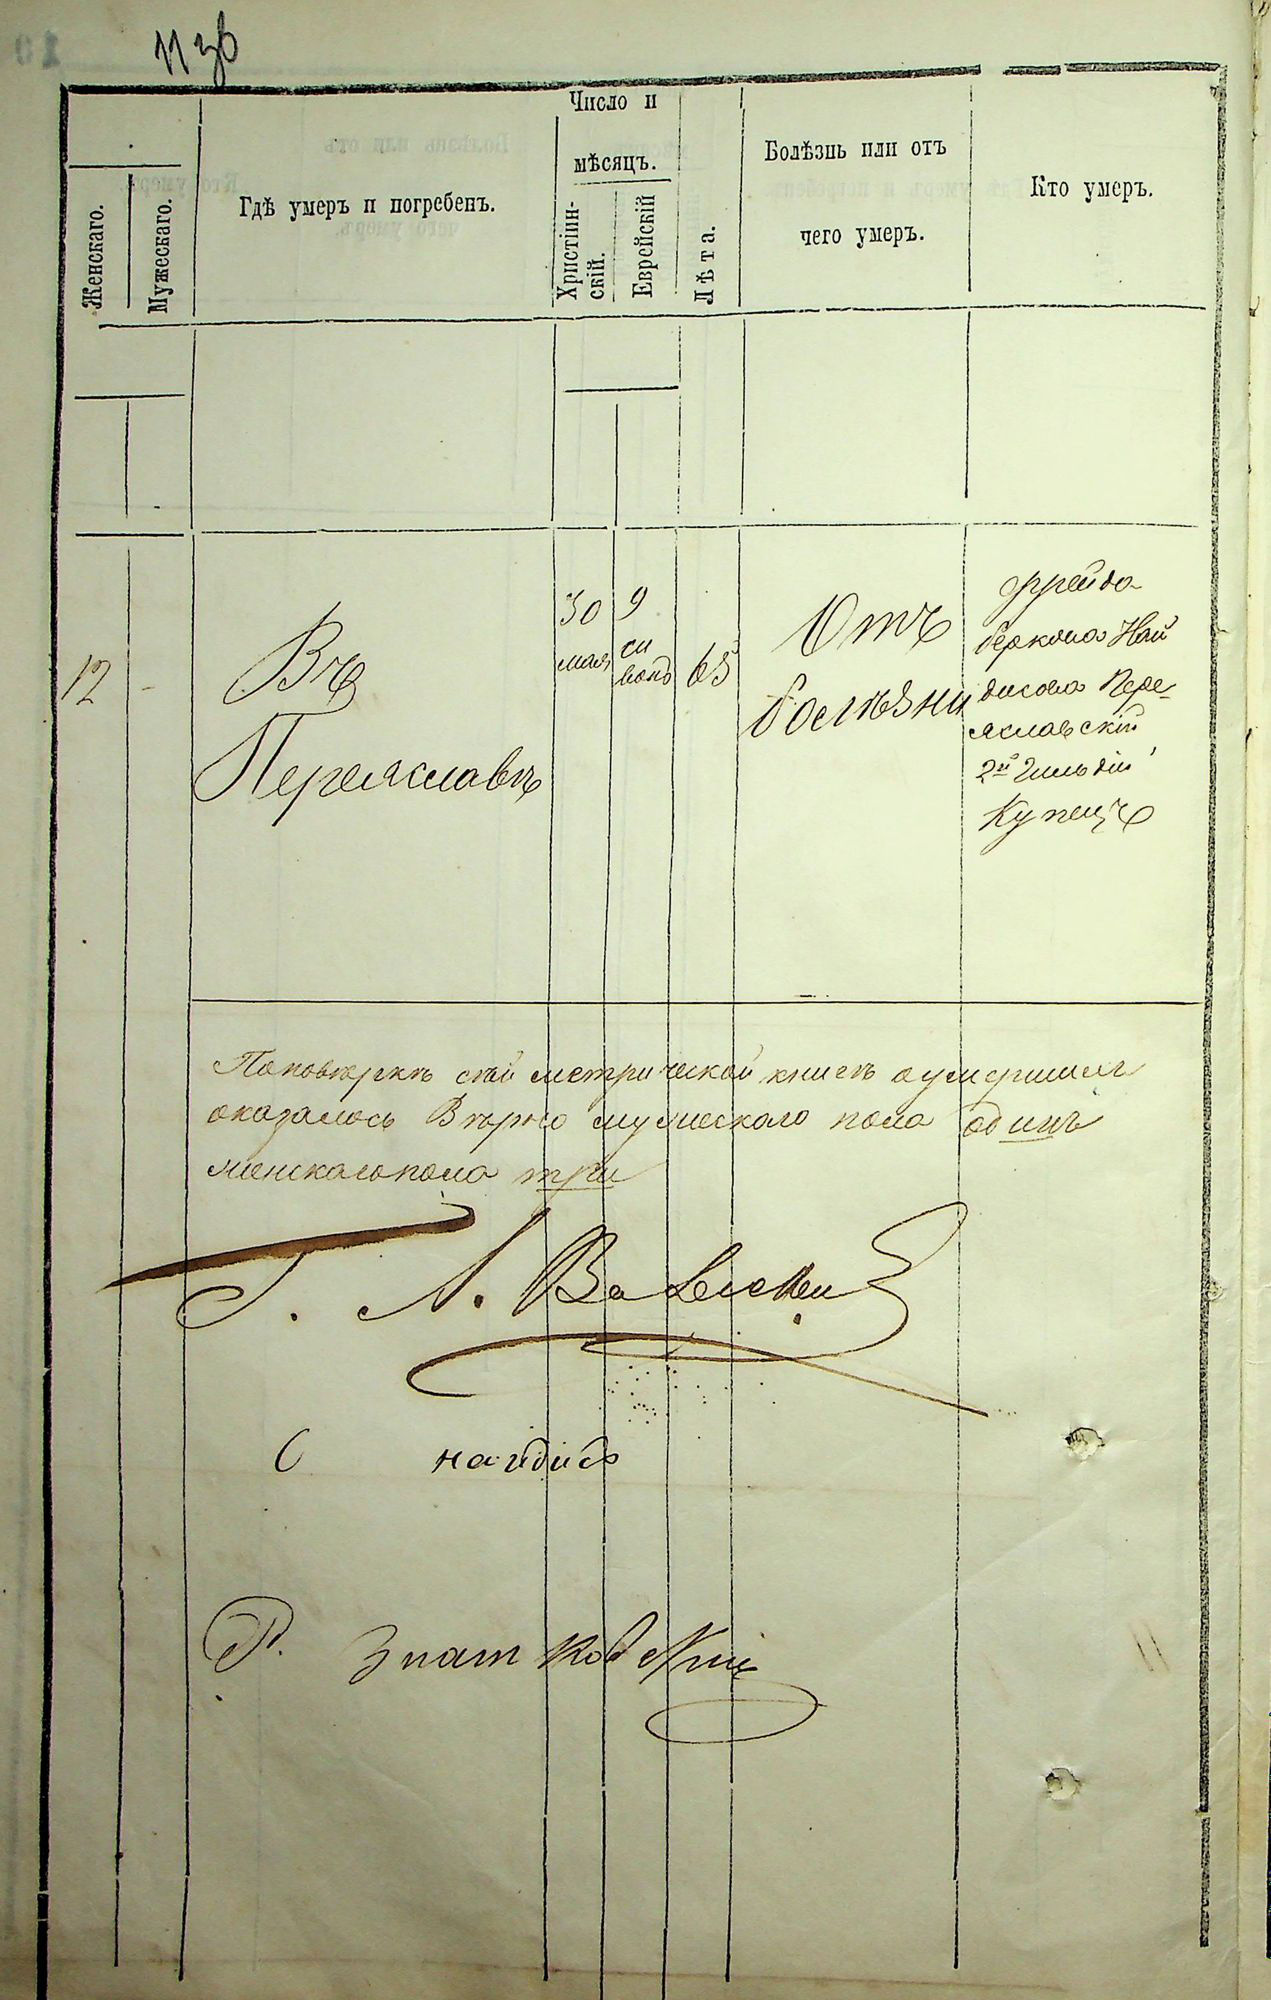 11 зв
Женскаго.
Мужескаго.
Гдѣ умеръ и погребенъ.
Число и
мѣсяцъ.
Христіан-
скій.
Еврейскій
Лѣта.
Болѣзнь или отъ
чего умеръ.
Кто умеръ.
12
-
Въ
Переяславѣ
30
мая
9
си
вонъ
65
Отъ
болѣзни
Фрейда
беркова Най
дисова Пере-
яславскій
2й Гильдій
Купецъ
Поповѣркѣ сей метрической книгѣ оумершихъ
оказалось Вѣрно мужескаго пола одинъ
женскагопола три
Г. А.
С найдисъ
Р.